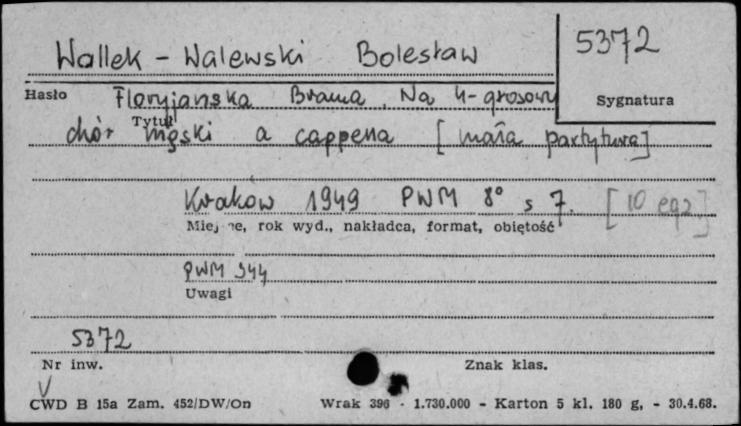 Wallek - Walewski Bolesław
5372
Hasło
Sygnatura
Floryjańska Brama. Na 4-głosowy
Tytuł
chór męski a cappella [mała partytura]
Kraków 1949 PWM 8° s 7. [10 egz.]
Miejsce, rok wyd., nakładca, format, objętość
PWM 344
Uwagi
5372
Nr inw.
Znak klas.
V
CWD B 15a Zam. 452/DW/On Wrak 396 - 1.730.000 - Karton 5 kl. 180 g, - 30.4.68.